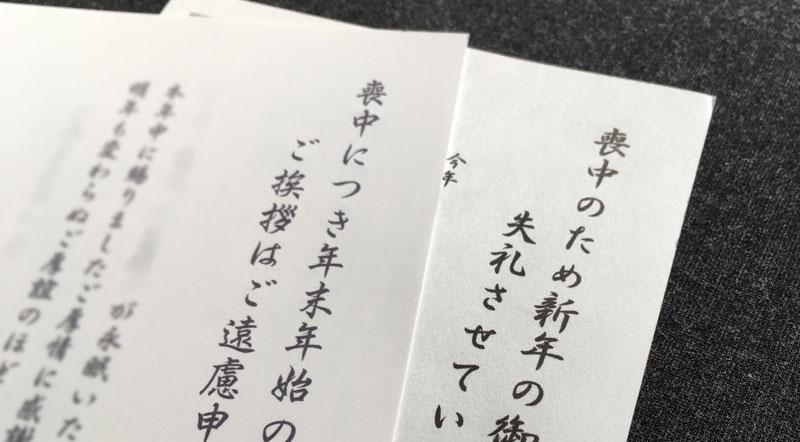 喪中につき年末年始の
ご挨拶はご遠慮申
が永眠いた
本年中に賜りましたご厚情に感謝
明年も変わらぬご厚誼のほど
喪中のため新年の御
失礼させてい
今年